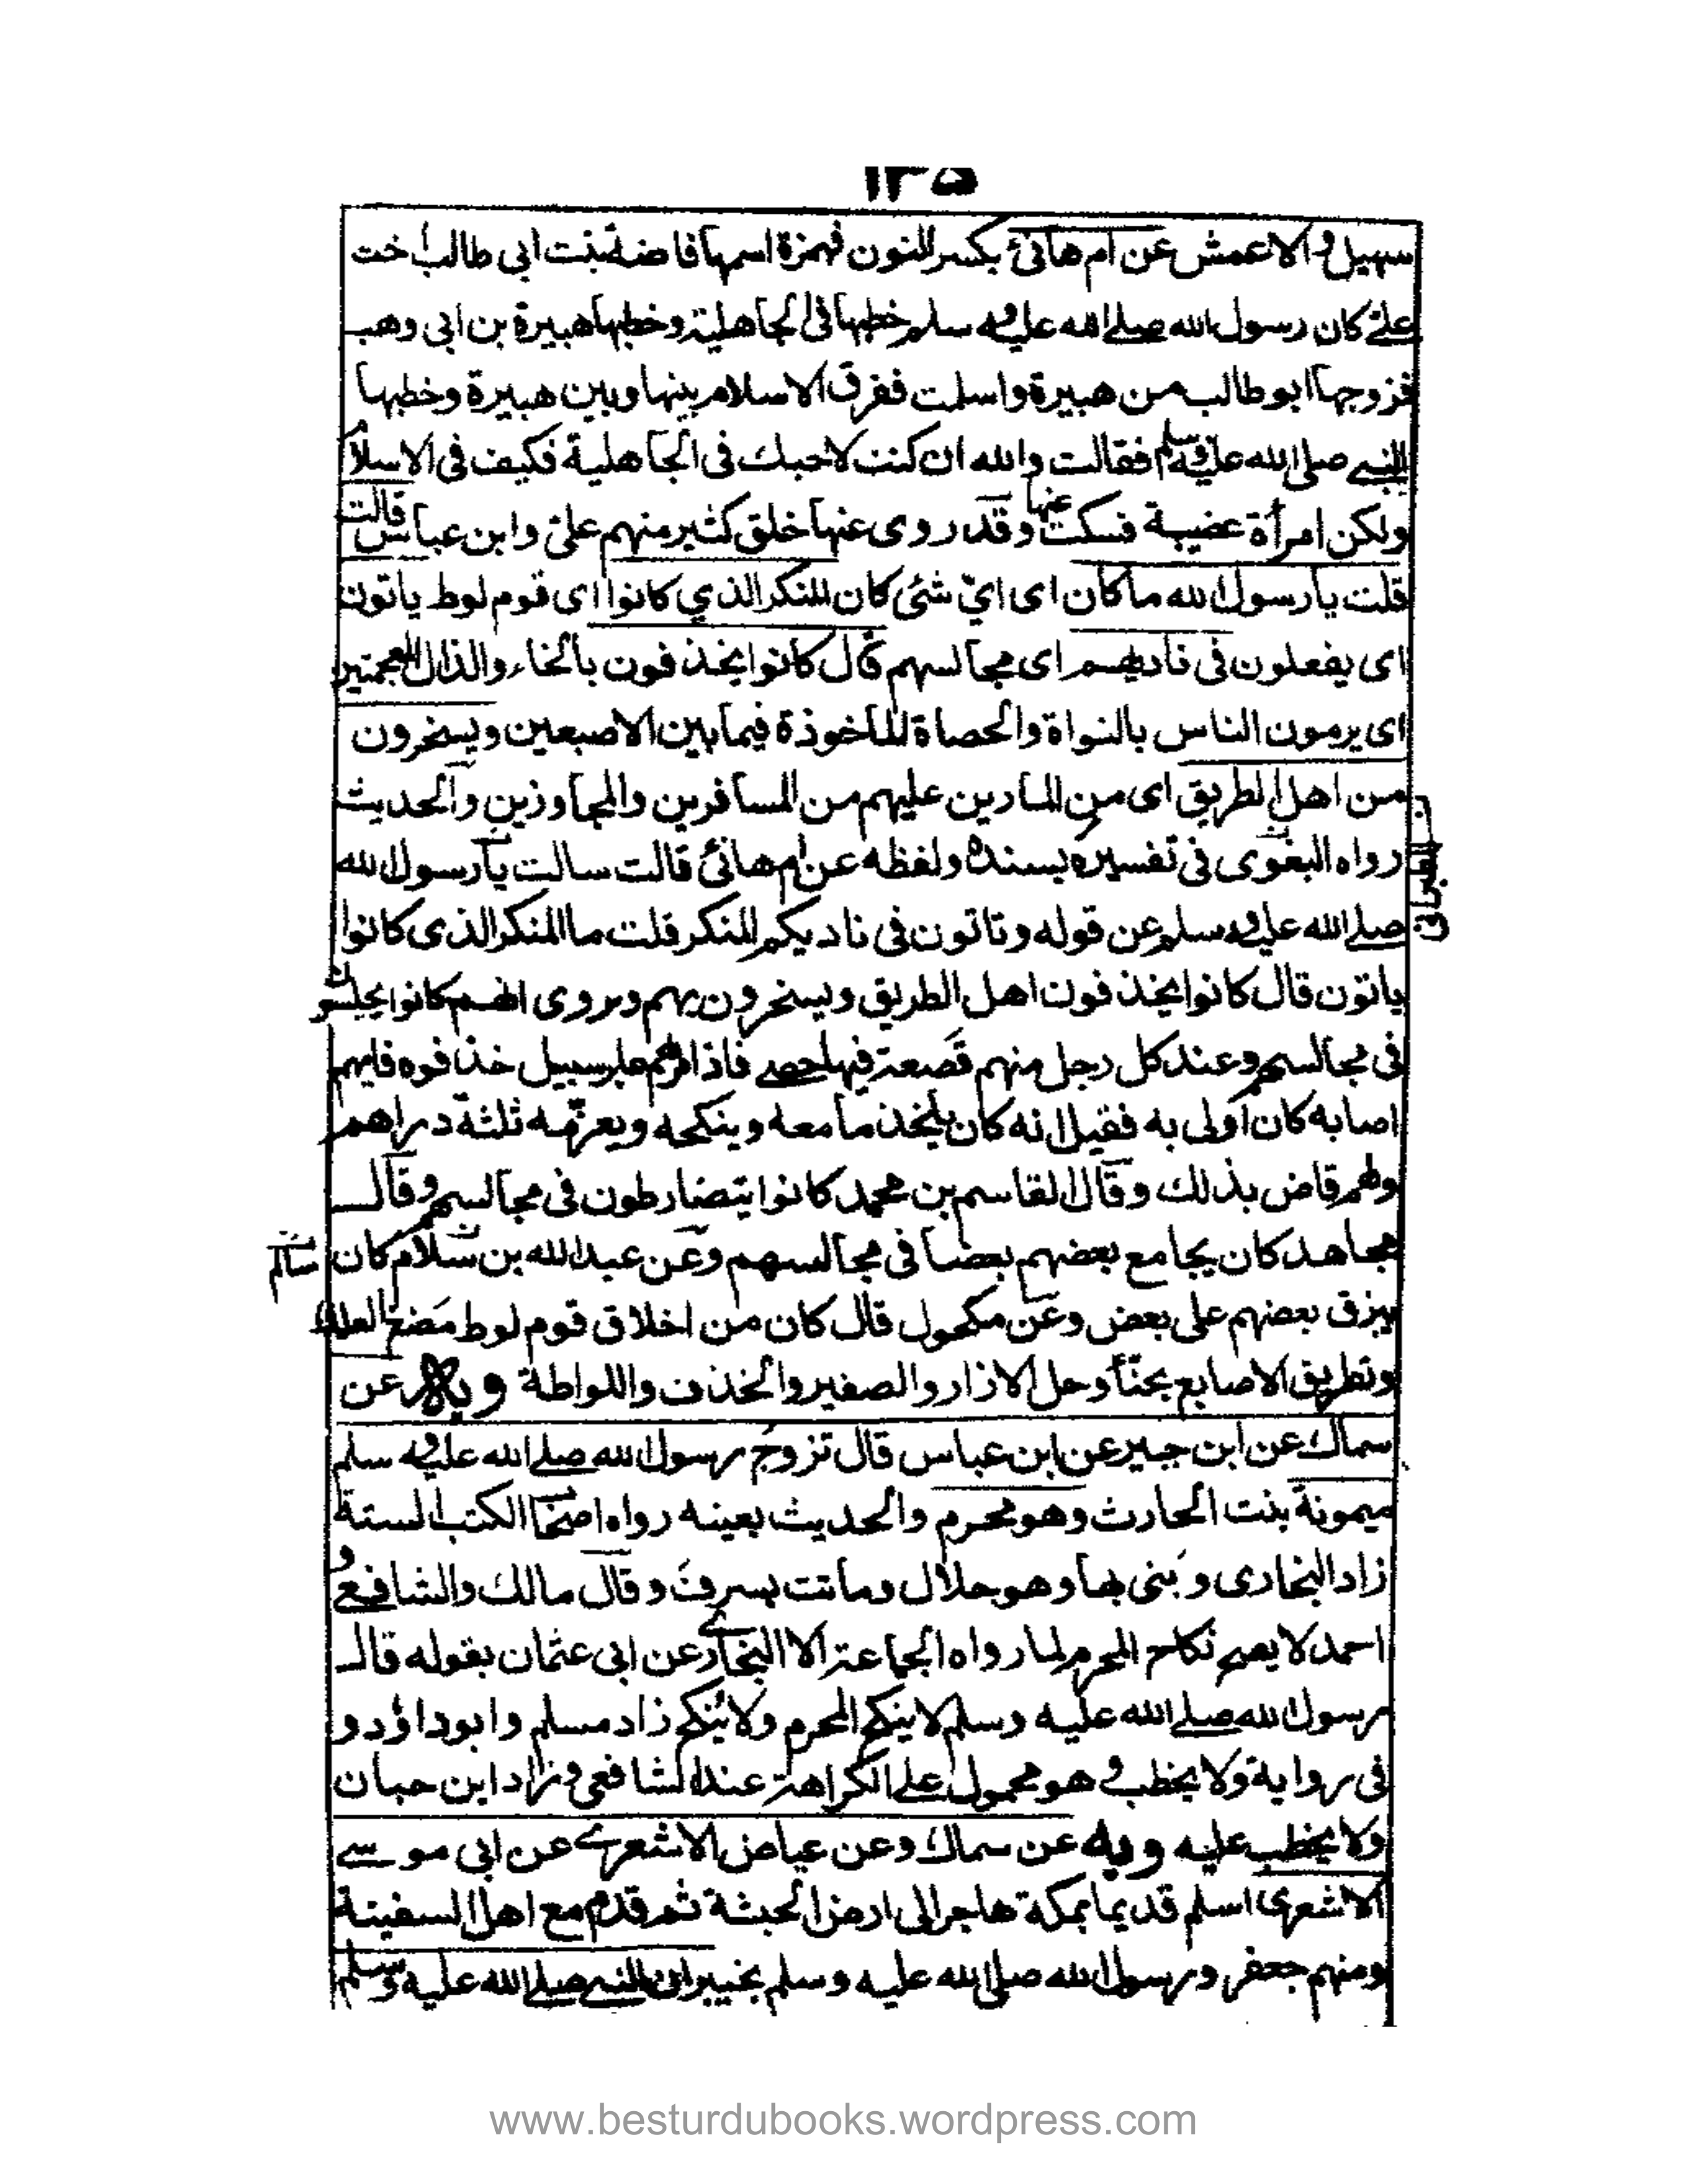 ١٣٥
سهيل والاعمش عن ام هانئ بكسر النون فهمزة اسمها فاختة بنت ابى طالب اخت
على كان رسول الله صلے الله عليه وسلم خطبها فى الجاهلية وخطبها هبيرة بن ابى وهب
فزوجها ابو طالب من هبيرة واسلمت ففرق الاسلام بينها وبين هبيرة وخطبها
النبى صلى الله عليه وسلم فقالت والله ان كنت لاحبك فى الجاهلية فكيف فى الاسلام
ولكن امرأة عضيبة فسكت عنها وقد روى عنها خلق كثير منهم على وابن عباس قالت
قلت يا رسول الله ما كان اى اىّ شئ كان المنكر الذي كانوا اى قوم لوط ياتون
اى يفعلون فى ناديهم اى مجالسهم قال كانوا يخذفون بالخاء والذال المعجمتين
اى يرمون الناس بالنواة والحصاة الماخوذة فيما بين الاصبعين ويسخرون
من اهل الطريق اى من المارين عليهم من المسافرين والمجاوزين والحديث
رواه البغوى فى تفسيره بسنده ولفظه عن ام هانئ قالت سالت يا رسول الله
صلے الله عليه وسلم عن قوله وتاتون فى ناديكم المنكر قلت ما المنكر الذى كانوا
ياتون قال كانوا يخذفون اهل الطريق ويسخرون بهم ويروى انهم كانوا يجلسون
فى مجالسهم وعند كل رجل منهم قصعة فيها حصے فاذا مر بهم عابر سبيل خذفوه فايهم
اصابه كان اولى به فقيل انه كان ياخذ ما معه وينكحه ويغرّمه ثلثة دراهم
ولهم قاض بذلك وقال القاسم بن محمد كانوا يتضارطون فى مجالسهم وقال
مجاهد كان يجامع بعضهم بعضا فى مجالسهم وعن عبد الله بن سلام كان
يبزق بعضهم على بعض وعن مكحول قال كان من اخلاق قوم لوط مضغ العلك
وتطريق الاصابع بحنّا وحل الازار والصفير والخذف واللواطة وبه عن
سماك عن ابن جبير عن ابن عباس قال تزوج رسول الله صلے الله عليه وسلم
ميمونة بنت الحارث وهو محرم والحديث بعينه رواه اصحاب الكتب الستة
زاد البخارى وبنى بها وهو حلال وماتت بسرف وقال مالك والشافعى و
احمد لا يصح نكاح المحرم لما رواه الجماعة الا البخارى عن ابى عثمان بقوله قال
رسول الله صلے الله عليه وسلم لا ينكح المحرم ولا يُنكح زاد مسلم وابو داؤد و
فى رواية ولا يخطب وهو محمول علے الكراهة عند الشافعى وزاد ابن حبان
ولا يخطب عليه وبه عن سماك وعن عياض الاشعرى عن ابى موسے
الاشعرى اسلم قديما بمكة هاجر الى ارض الحبشة ثم قدم مع اهل السفينة
ومنهم جعفر ورسول الله صلى الله عليه وسلم بخيبر ان النبى صلے الله عليه وسلم
www.besturdubooks.wordpress.com